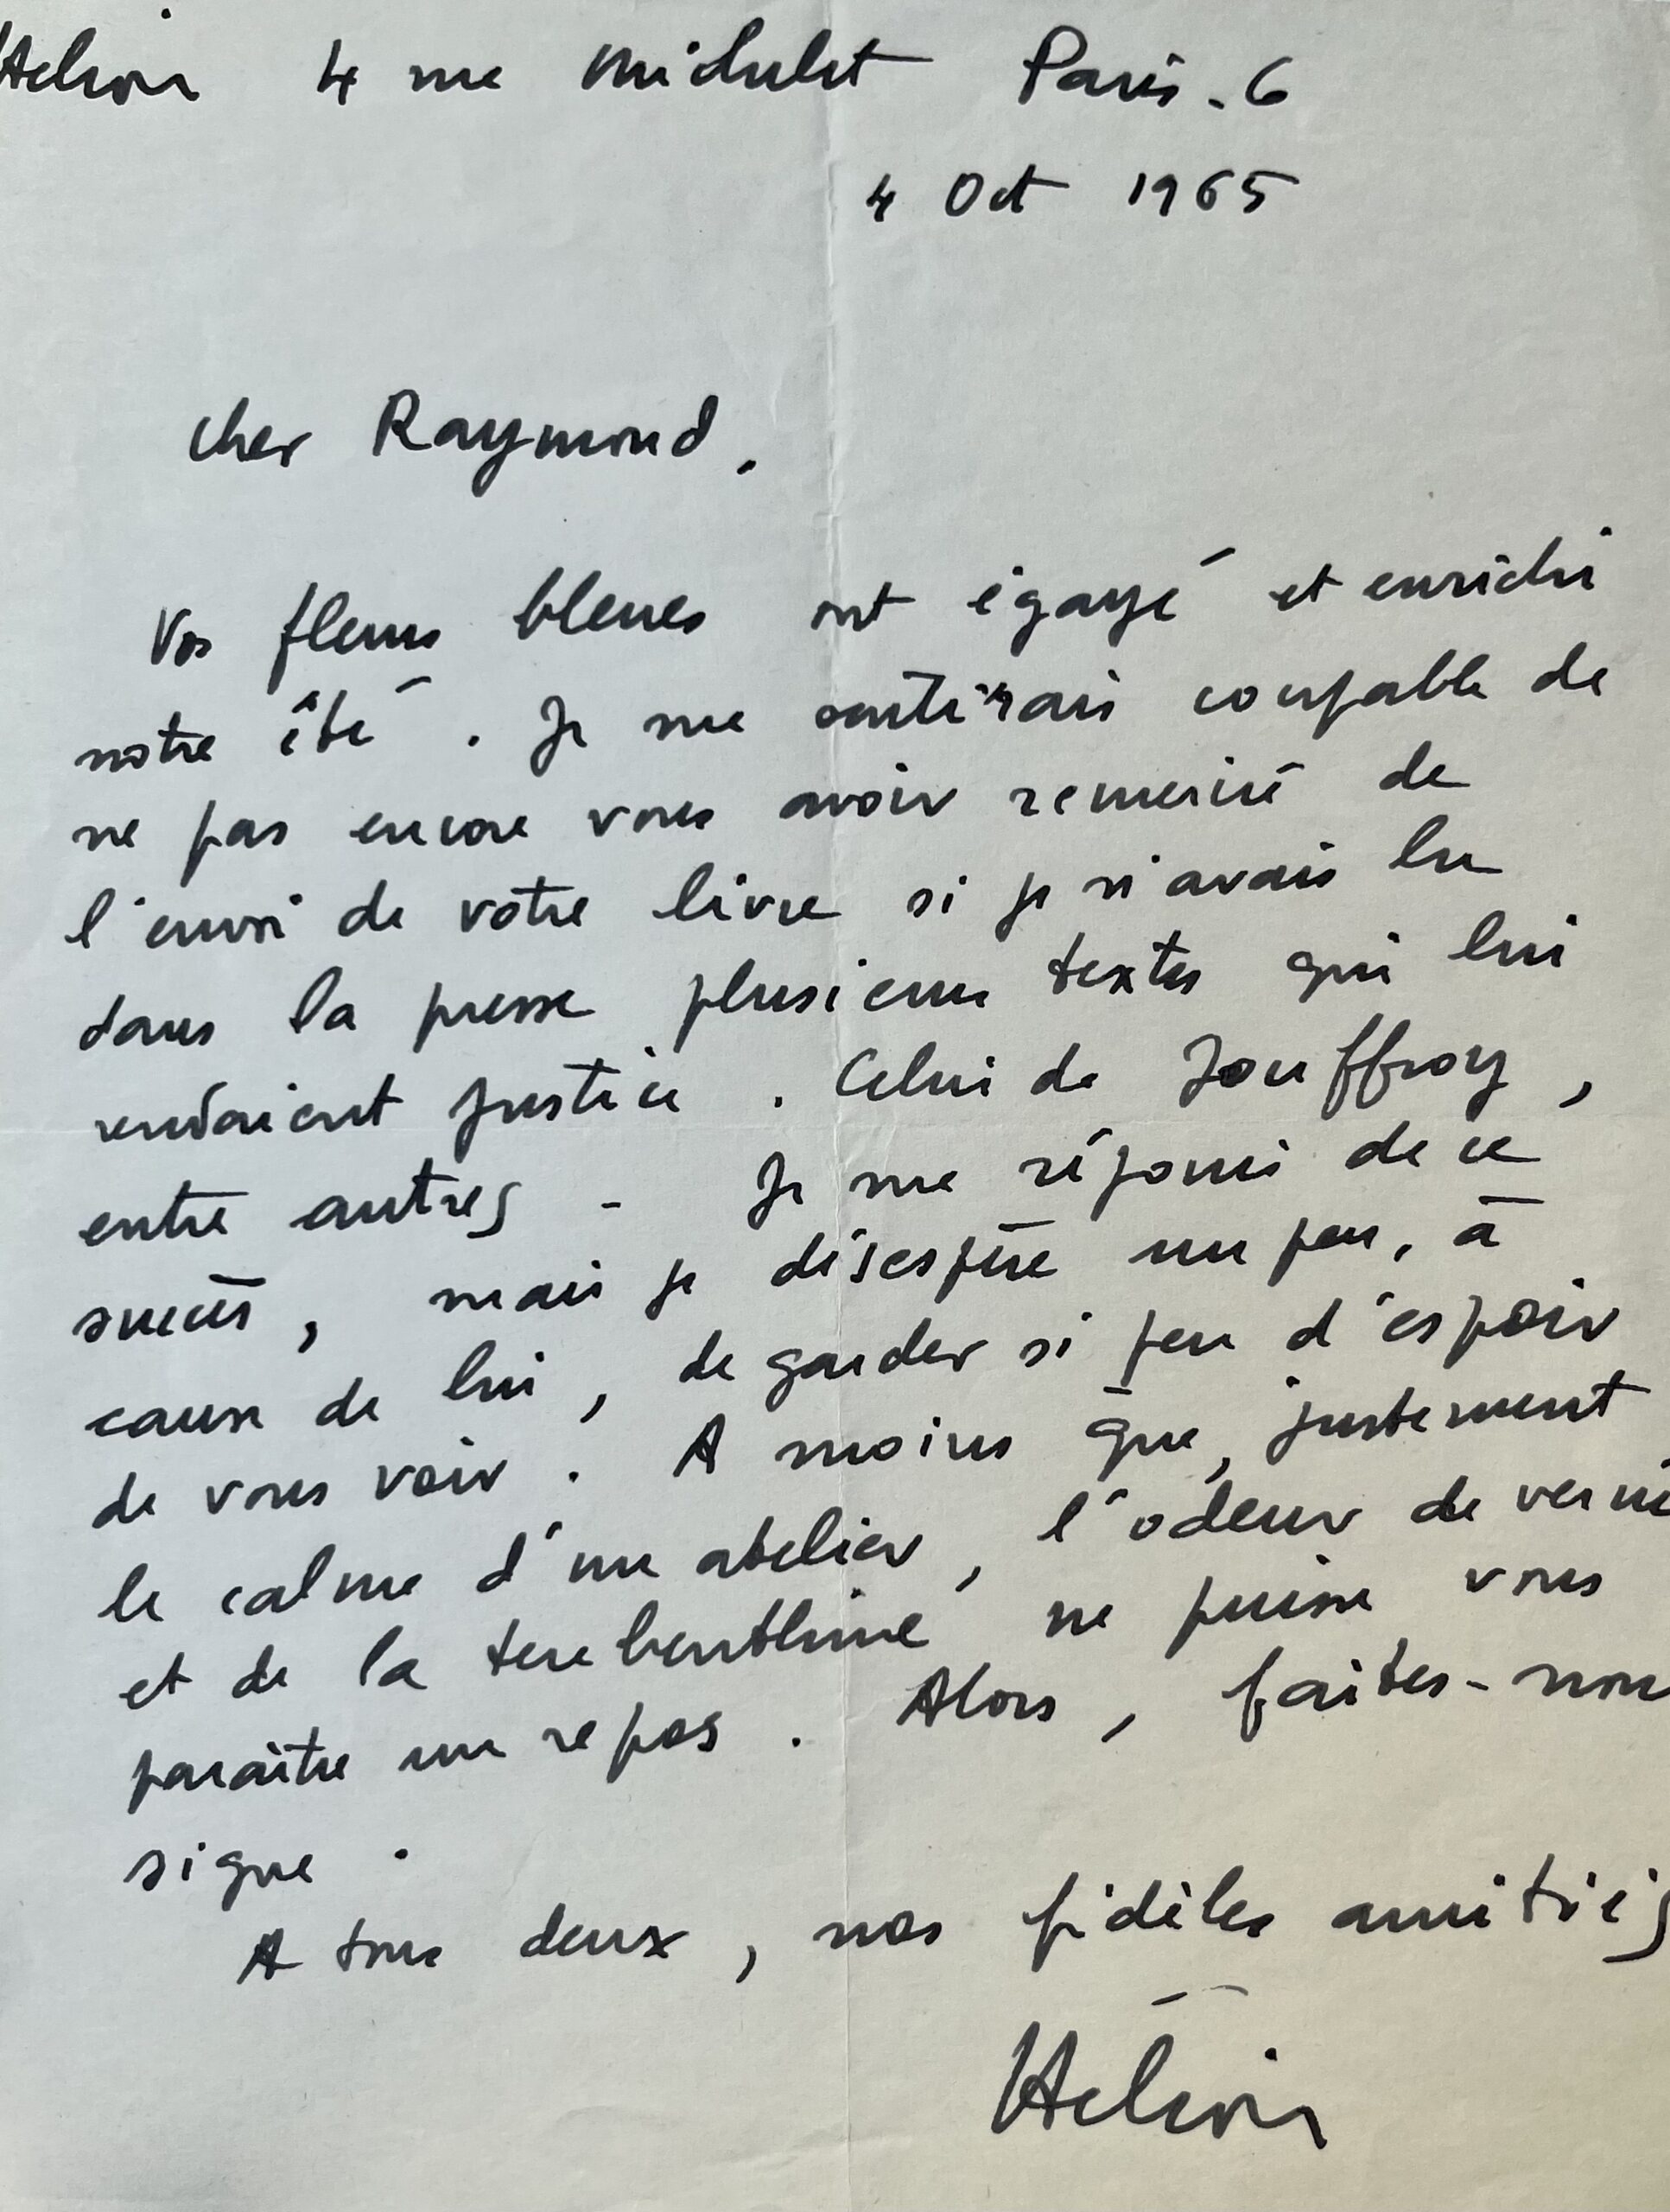 Hélion 4 rue Michelet Paris-6
4 Oct 1965
Cher Raymond,
Vos fleurs bleues ont égayé et enrichi
notre été. Je me sentirais coupable de
ne pas encore vous avoir remercié de
l'envoi de votre livre si je n'avais lu
dans la presse plusieurs textes qui lui
rendaient justice. Celui de Jouffroy,
entre autres - Je me réjouis de ce
succès, mais je désespère un peu, à
cause de lui, de garder si peu d'espoir
de vous voir. A moins que, justement
le calme d'un atelier, l'odeur de verni
et de la terebenthine ne puisse vous
paraître un repos. Alors, faites-nou
signe.
A tous deux, nos fidèles amitiés
Hélion